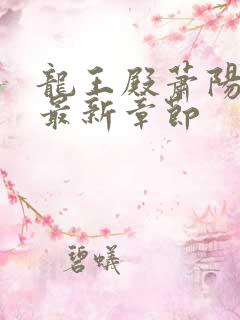 龍王殿蕭陽
最新章節
碧蟻